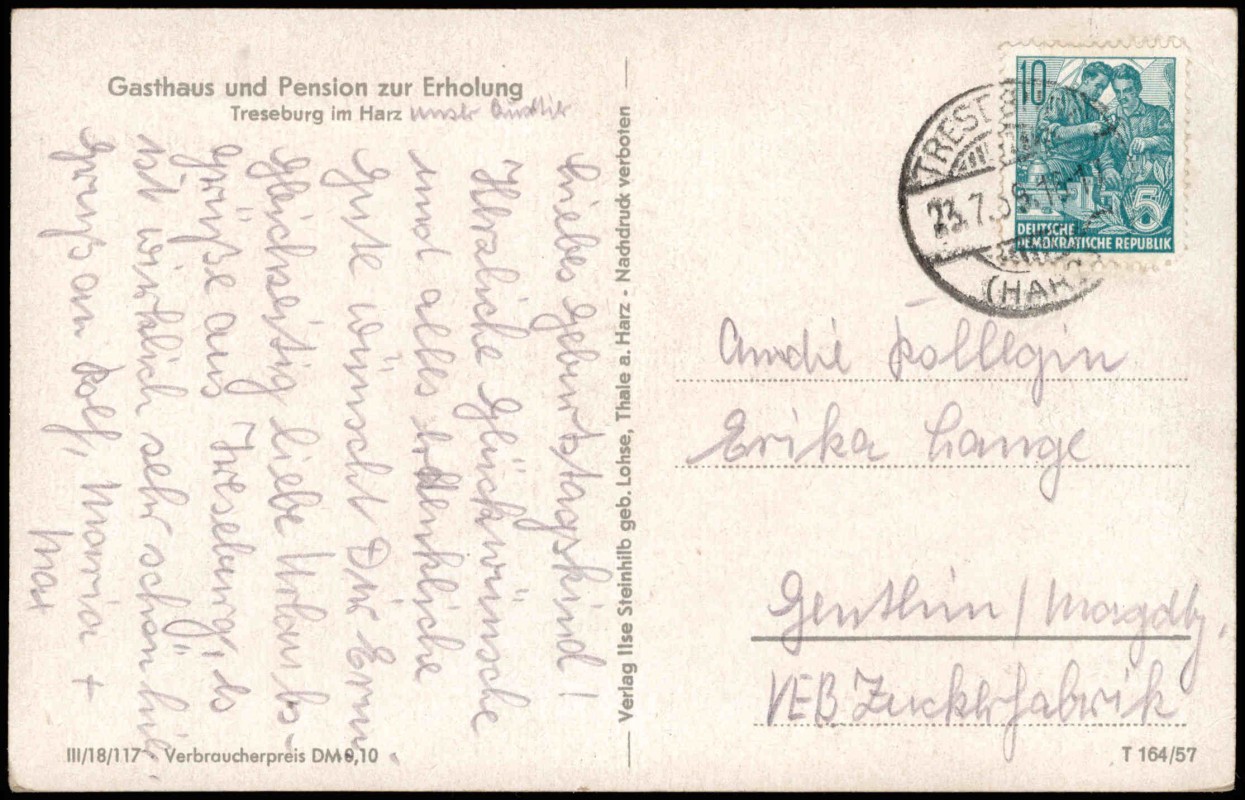 Gasthaus und Pension zur Erholung
Treseburg im Harz unser Quartier
Liebes Geburtstagskind!
Herzliche Glückwünsche
und alles erdenkliche
Gute wünscht Dir Erna
Gleichzeitig liebe Urlaubs-
grüße aus Treseburg, es
ist wirklich sehr schön hier
Gruß an Rolf, Maria +
Max
Verlag Ilse Steinhilb geb. Lohse, Thale a. Harz - Nachdruck verboten
10
5
DEUTSCHE
DEMOKRATISCHE REPUBLIK
TRESEB
23.7.5
(HARZ
Kollegin
Erika Lange
Genthin / Magdbg.
VEB Zuckerfabrik
III/18/117 Verbraucherpreis DM 0,10
T 164/57